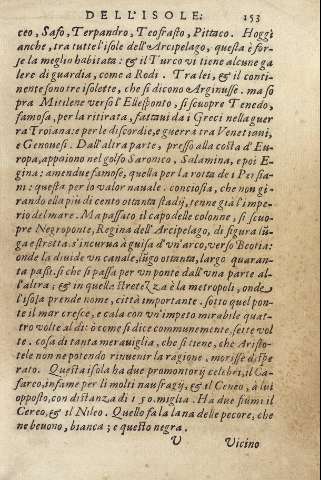 DELL'ISOLE. 153
ceo, Safo, Terpandro, Teofrasto, Pittaco. Hoggi
anche, tra tutte l'isole dell'Arcipelago, questa è for-
se la meglio habitata: & il Turco vi tiene alcune ga
lere di guardia, come à Rodi. Tra lei, & il conti-
nente sono tre isolette, che si dicono Arginusse. ma so
pra Mitilene verso l'Ellesponto, si scuopre Tenedo,
famosa, per la ritirata, fattaui da i Greci nella guer
ra Troiana: e per le discordie, e guerra tra Venetiani,
e Genouesi. Dall'altra parte, presso alla costa d'Eu
ropa, appaiono nel golfo Saronco, Salamina, e poi E
gina: amendue famose, quella per la rotta de i Persia
ni: questa per lo valor nauale. conciosia, che non gi
rando ella più di cento ottanta stadij, tenne già l'impe
rio del mare. Ma passato il capo delle colonne, si scuo
pre Negroponte, Regina dell'Arcipelago, di figura lũ
ga e strotta: s'incurua à guisa d'vn'arco, verso Beotia:
onde la diuide vn canale, lũgo ottanta, largo quaran
ta passi. si che si passa per vn ponte dall'vna parte al-
l'altra; & in quella stretezza è la metropoli, onde
l'isola prende nome, città importante. sotto quel pon
te il mar cresce, e cala con vn'impeto mirabile quat
tro volte al dì: ò come si dice communemente, sette vol
te. cosa di tanta merauiglia, che si tiene, che Aristo-
tele non ne potendo rinuenir la ragione, morisse dispe
rato. Questa isola ha due promontorij celebri, il Ca-
farco, infame per li molti naufragij, & il Ceneo, à lui
opposto, con distanza di 150. miglia. Ha due fiumi il
Cereo, & il Nileo. Quello fa la lana delle pecore, che
ne beuono, bianca; e questo negra.
V Vicino